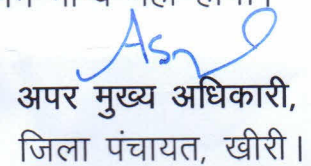 अपर मुख्य अधिकारी,
जिला पंचायत, खीरी।